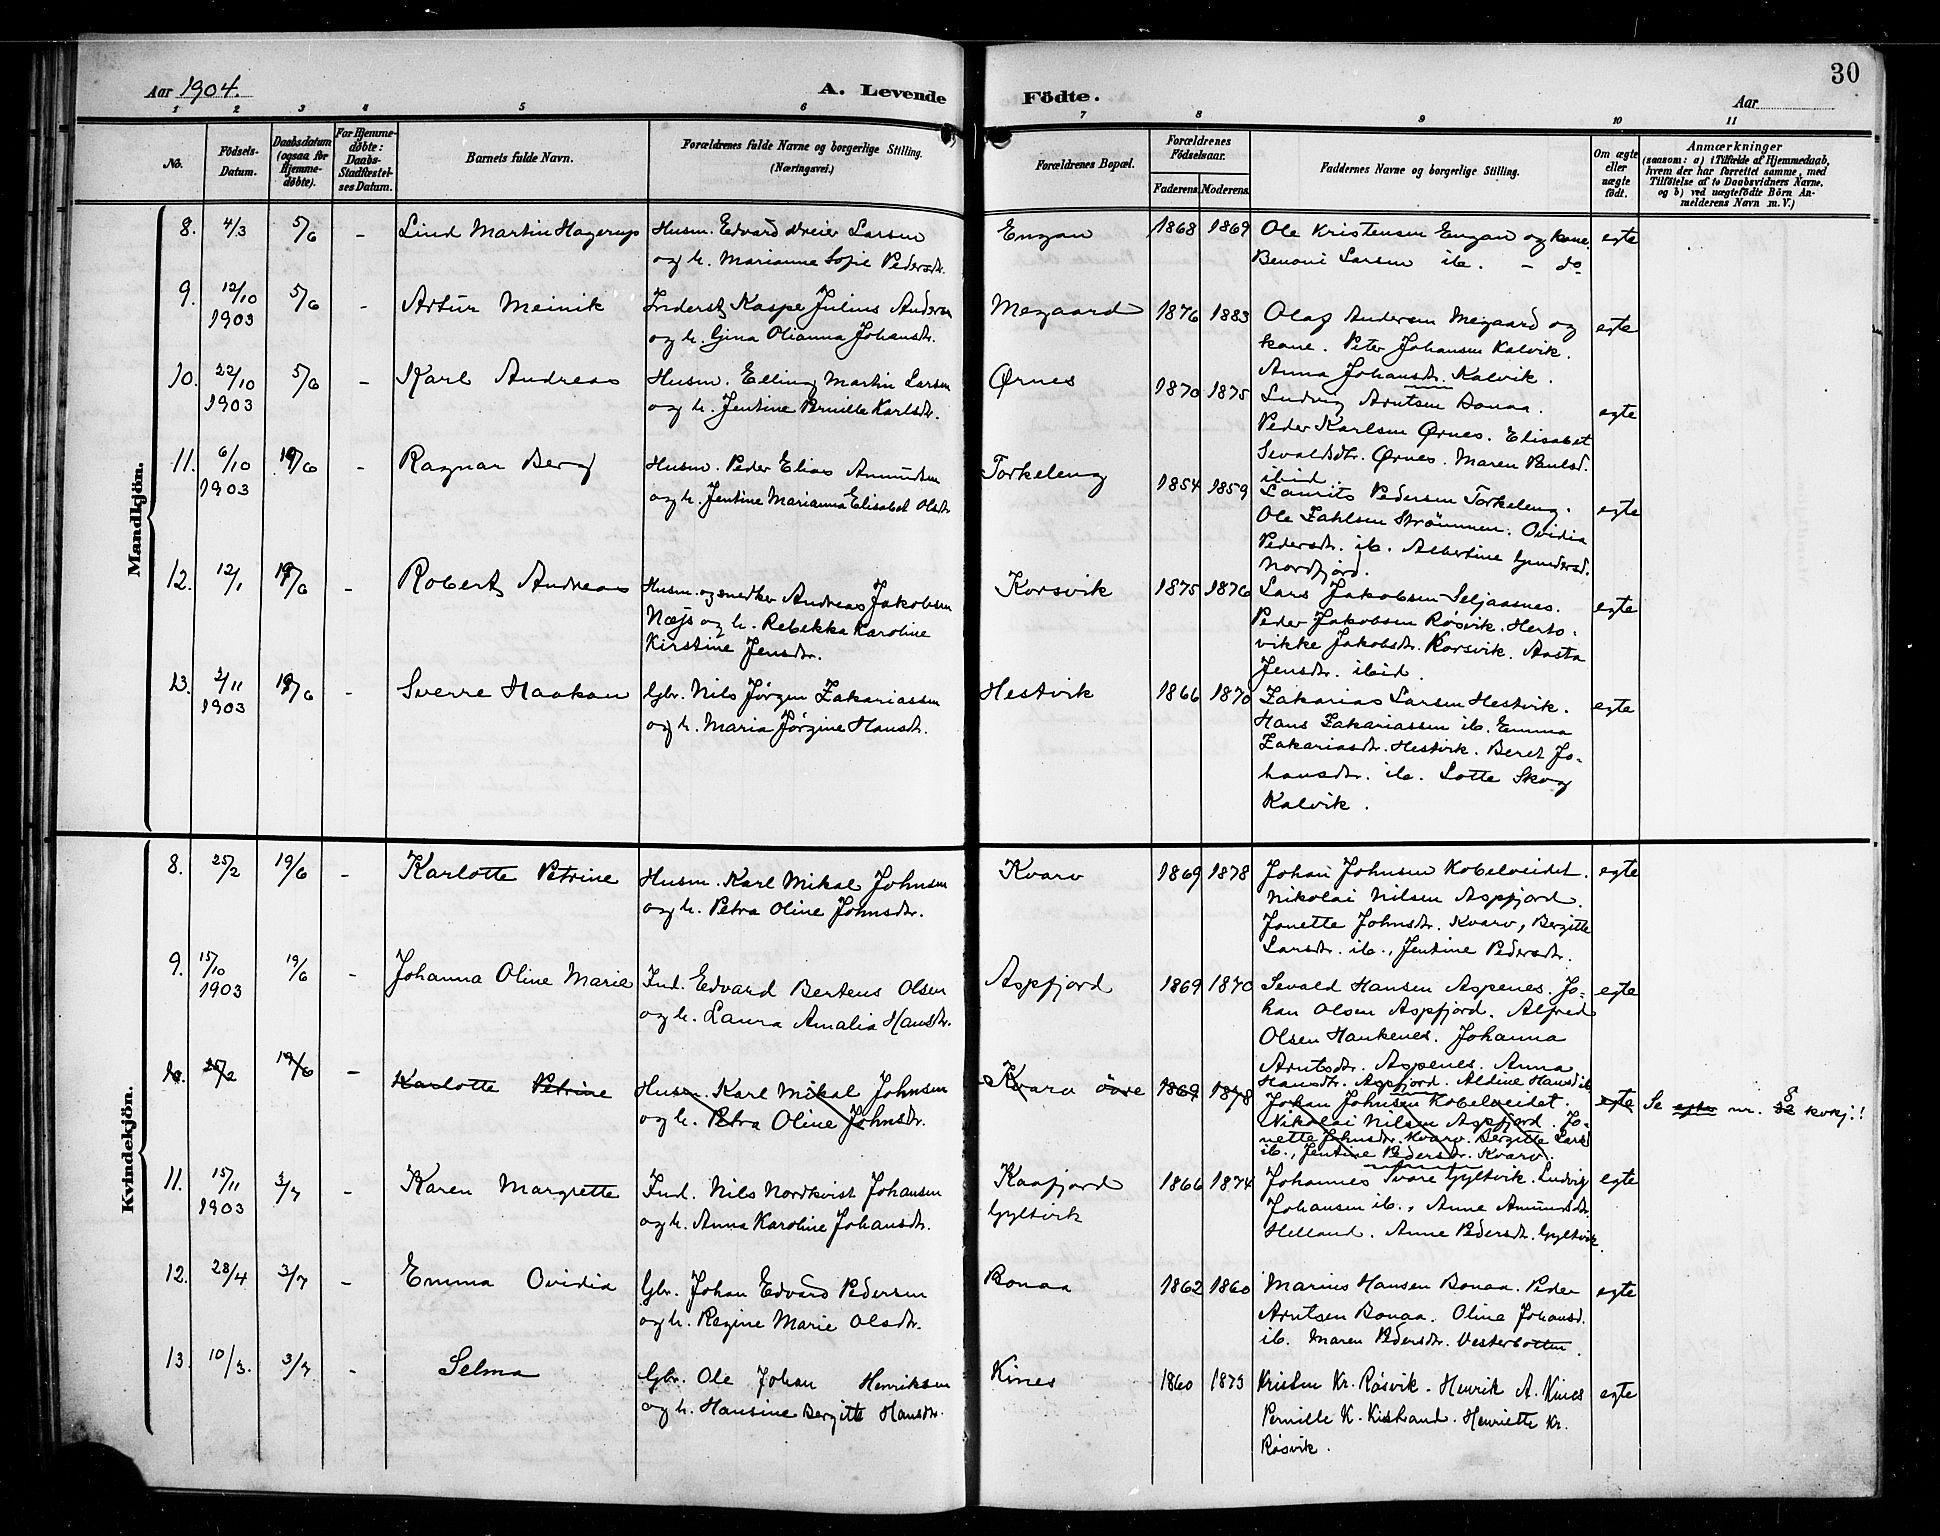 Aar 1904.
A. Levende
Födte.
Aar
30
1 2 3 4 5 6 7 8 9 10 11
No.
Födsels-
Datum.
Daabsdatum
(ogsaa for
Hjemme-
døbte).
For Hjemme-
døbte:
Daabs-
Stadfæstel-
ses Datum.
Barnets fulde Navn.
Forældrenes fulde Navne og borgerlige Stilling.
(Næringsvei.)
Forældrenes Bopæl.
Forældrenes
Födselsaar.
Faderens. Moderens.
Faddernes Navne og borgerlige Stilling.
Om ægte
eller
uægte
født.
Anmærkninger
(saasom: a) i Tilfælde af Hjemmedaab,
hvem der har forrettet samme, med
Tilföielse af to Daabsvidners Navne,
og b) ved uægtefödte Börn An-
melderens Navn m. V.)
Mandkjön.
8. 4/3 5/6 - Lind Martin Hagerup
Husm. Edvard Larsen
og h. Marianna Sofie Pedersdtr.
Engan 1868 1869
Ole Kristensen Engan og kone.
Benoni Larsen ib. - do
egte
9. 12/10 1903 5/6 - Artur Meinik
Inderst Kaspe Julius Andersen
og h. Gina Olianna Johansdtr.
Megaard 1876 1883
Olaf Andersen Megaard og
kone. Peter Johansen Kalvik.
Anna Johansdtr. Kalvik.
egte
10. 22/10 1903 5/6 - Karl Andreas
Husm. Elling Martin Larsen
og h. Jentine Pernille Karlsdtr.
Ørnes 1870 1875
Ludvig Arntsen Bonaa.
Peder Karlsen Ørnes. Elisabet
Sevaldsdtr. Ørnes. Maren Paulsd.
ibid.
egte
11. 6/10 1903 19/6 - Ragnar Berg
Husm. Peder Elias Amundsen
og h. Jentine Marianna Elisabet Olsdtr.
Torkeleng 1854 1859
Laurits Pedersen Torkeleng.
Ole Zahlsen Strømmen. Ovidia
Pedersdtr. ib. Albertine Gundersd.
Nordfjord.
egte
12. 12/1 19/6 - Robert Andreas
Husm. og snedker Andreas Jakobsen
Næjs og h. Rebekka Karoline
Kirstine Jensdtr.
Korsvik 1875 1876
Lars Jakobsen Seljaasnes.
Peder Jakobsen Røsvik. Herto-
vikke Jakobsdtr. Korsvik. Aasta
Jensdtr. ibid.
egte
13. 2/11 1903 19/6 - Sverre Haakon
Gbr. Nils Jørgen Zakariassen
og h. Maria Jørgine Hansdtr.
Hestvik 1866 1870
Zakarias Larsen Hestvik.
Hans Zakariassen ib. Emma
Zakariasdtr. Hestvik. Beret Jo-
hansdtr. ib. Lotte Skog
Kalvik.
egte
Kvindekjön.
8. 25/2 19/6 - Karlotte Petrine
Husm. Karl Mikal Johnsen
og h. Petra Oline Johnsdtr.
Kvarv 1869 1878
Johan Johnsen Kobelveidet.
Nikolai Nilsen Aspfjord.
Jonette Johnsdtr. Kvarv, Bergitte
Larsdtr. ib., Jentine Pedersdtr.
egte
9. 15/10 1903 19/6 - Johanna Oline Marie
Ind. Edvard Bertens Olsen
og h. Laura Amalia Hansdtr.
Aspfjord 1869 1870
Sevald Hansen Aspenes. Jo-
han Olsen Aspfjord. Alfred
Olsen Hankenes. Johanna
Arntsdtr. Aspenes. Anna
Hansdtr. Aspfjord. Aldine Hansd ib
egte
10. 25/2 19/6 - Karlotte Petrine
Husm. Karl Mikal Johnsen
og h. Petra Oline Johnsdtr.
Kvarv øvre 1869 1878
Johan Johnsen Kobelveidet.
Nikolai Nilsen Aspfjord. Jo-
nette Johnsdtr. Kvarv. Bergitte Larsd
ib., Jentine Pedersdtr. Kvarv.
egte
Se nr. 8 kvkj.!
11. 15/11 1903 3/7 - Karen Margrette
Ind. Nils Nordkvist Johansen
og h. Anna Karoline Johansdtr.
Kaafjord
Gyltvik
1866 1874
Johannes Ivare Gyltvik. Ludvig
Johansen ib., Anne Amundsdtr.
Helland. Anne Pedersdtr. Gyltvik.
egte
12. 28/4 3/7 - Emma Ovidia
Gbr. Johan Edvard Pedersen
og h. Regine Marie Olsdtr.
Bonaa 1862 1860
Marius Hansen Bonaa. Peder
Arntsen Bonaa. Oline Johansd.
ib. Maren Pedersdtr. Vesterbotten.
egte
13. 10/3. 3/7 - Selma
Gbr. Ole Johan Henriksen
og h. Hansine Bergitte Hansdtr.
Kines 1860 1873
Kristen Kr. Røsvik. Henrik A. Kines
Pernille K. Henriette Kr.
Røsvik.
egte